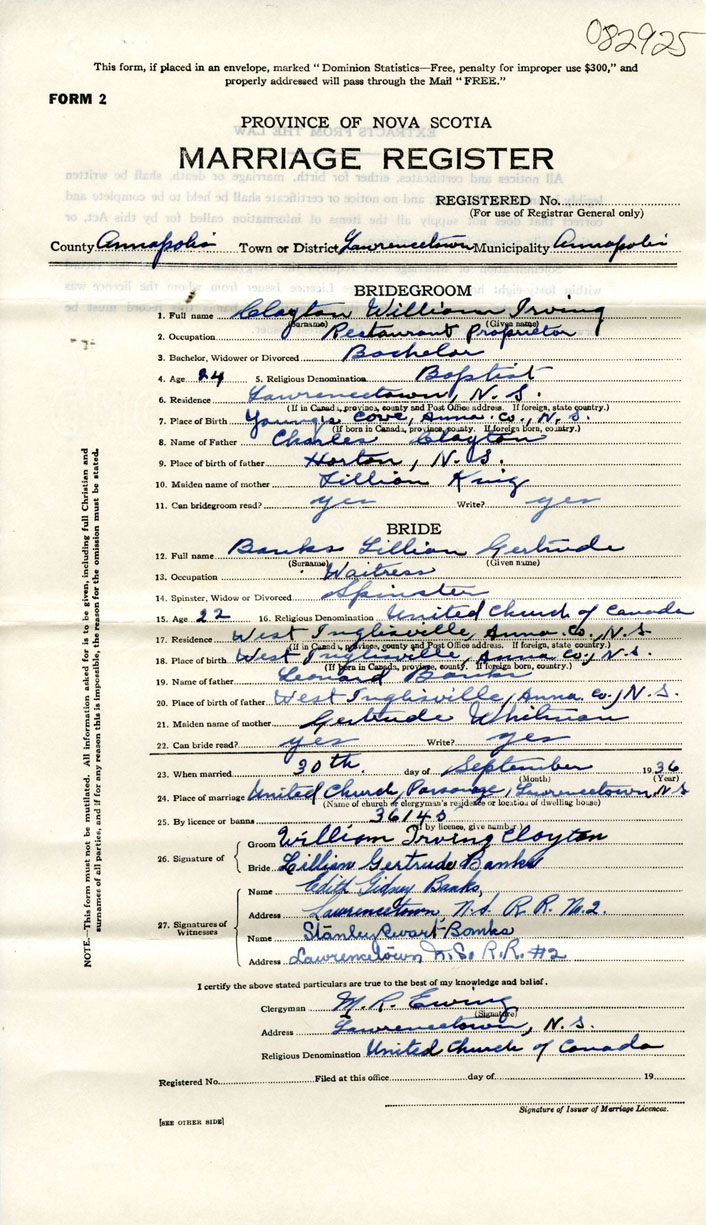 082925
This form, if placed in an envelope, marked "Dominion Statistics—Free, penalty for improper use $300," and
properly addressed will pass through the Mail "FREE."
FORM 2
PROVINCE OF NOVA SCOTIA
MARRIAGE REGISTER
REGISTERED No.
(For use of Registrar General only)
County Annapolis Town or District Lawrencetown Municipality Annapolis
BRIDEGROOM
1. Full name Clayton William Irving
(Surname) (Given name)
2. Occupation Restaurant Proprietor
3. Bachelor, Widower or Divorced Bachelor
4. Age 24 5. Religious Denomination Baptist
6. Residence Lawrencetown, N.S.
(If in Canada, province, county and Post Office address. If foreign, state country.)
7. Place of Birth Young's Cove, Anna. Co., N.S.
(If born in Canada, province, county. If foreign born, country.)
8. Name of Father Charles Clayton
9. Place of birth of father Horton, N.S.
10. Maiden name of mother Lillian King
11. Can bridegroom read? yes Write? yes
BRIDE
12. Full name Banks Lillian Gertrude
(Surname) (Given name)
13. Occupation Waitress
14. Spinster, Widow or Divorced Spinster
15. Age 22 16. Religious Denomination United Church of Canada
17. Residence West Inglisville, Anna. Co., N.S.
(If in Canada, province, county and Post Office address. If foreign, state country.)
18. Place of birth West Inglisville, Anna Co., N.S.
(If born in Canada, province, county. If foreign born, country.)
19. Name of father Leonard Banks
20. Place of birth of father West Inglisville, Anna. Co., N.S.
21. Maiden name of mother Gertrude Whitman
22. Can bride read? yes Write? yes
23. When married 30th. day of September 1936
(Month) (Year)
24. Place of marriage United Church, Parsonage, Lawrencetown, N.S
(Name of church or clergyman's residence or location of dwelling house)
25. By licence or banns 36140
(If by licence, give number)
26. Signature of
Groom William Irving Clayton
Bride Lillian Gertrude Banks
27. Signatures of Witnesses
Name Edith Sidney Banks,
Address Lawrencetown, N.S. R.R. No.2.
Name Stanley Ewart Banks
Address Lawrencetown N.S. R.R. #2
I certify the above stated particulars are true to the best of my knowledge and belief.
Clergyman M. R. Ewing
(Signature)
Address Lawrencetown, N.S.
Religious Denomination United Church of Canada
Registered No. Filed at this office day of 19
Signature of Issuer of Marriage Licences.
[SEE OTHER SIDE]
NOTE.—This form must not be mutilated. All information asked for is to be given, including full Christian and
surnames of all parties, and if for any reason this is impossible, the reason for the omission must be stated.